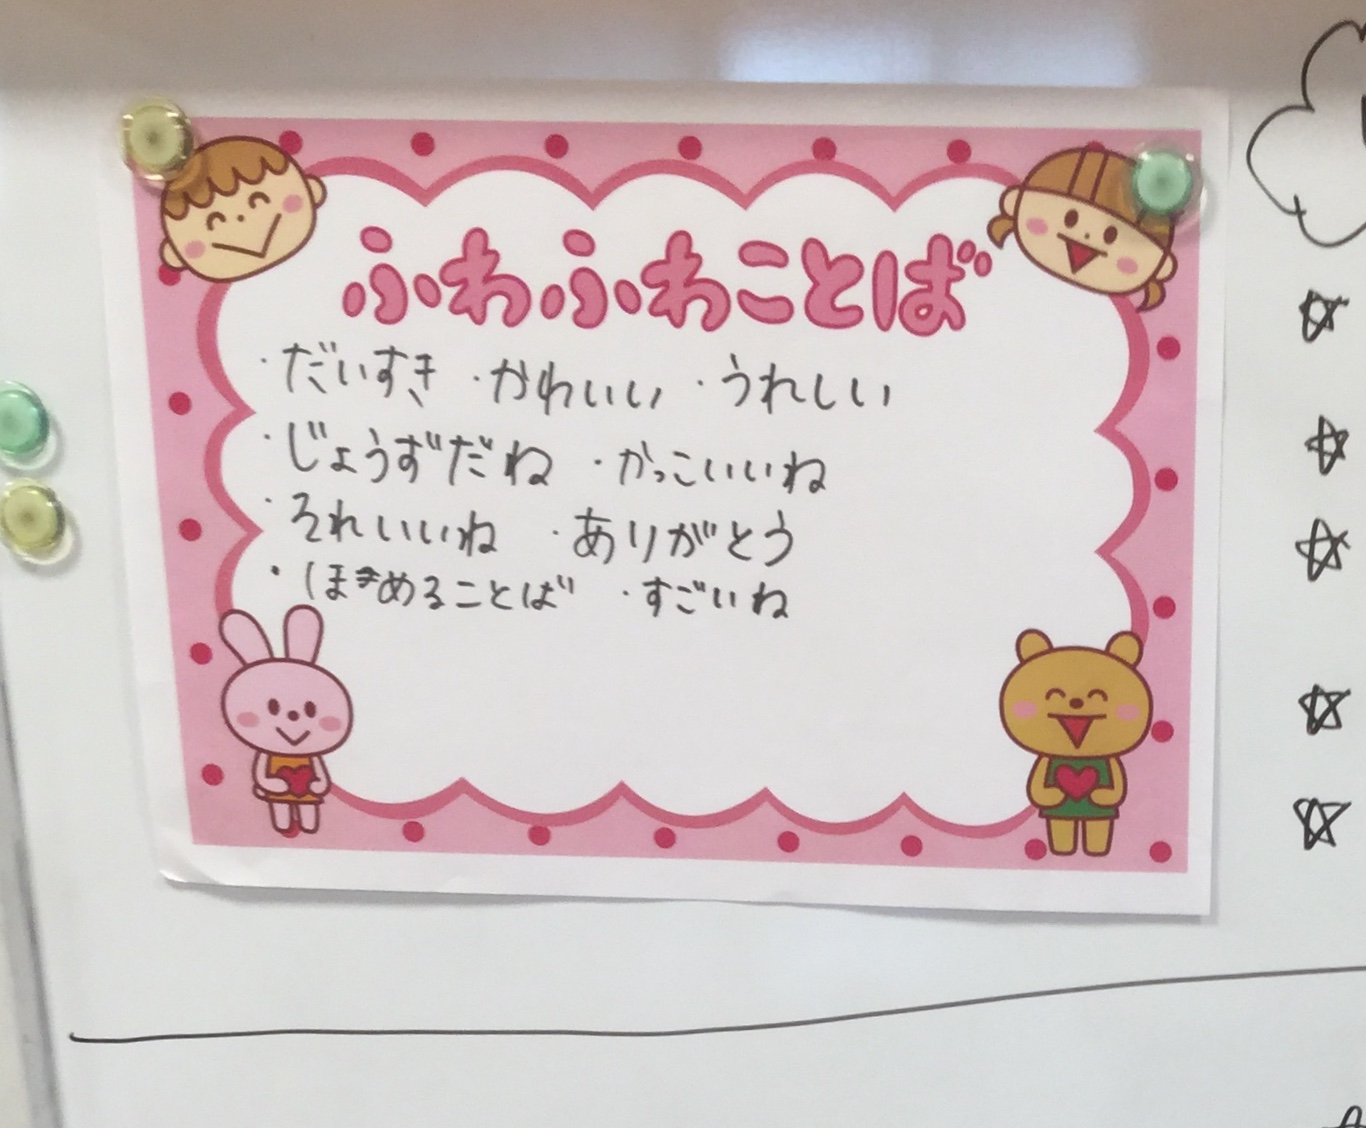 ふわふわことば
・だいすき ・かわいい ・うれしい
・じょうずだね ・かっこいいね
・それいいね ・ありがとう
・ほめることば ・すごいね